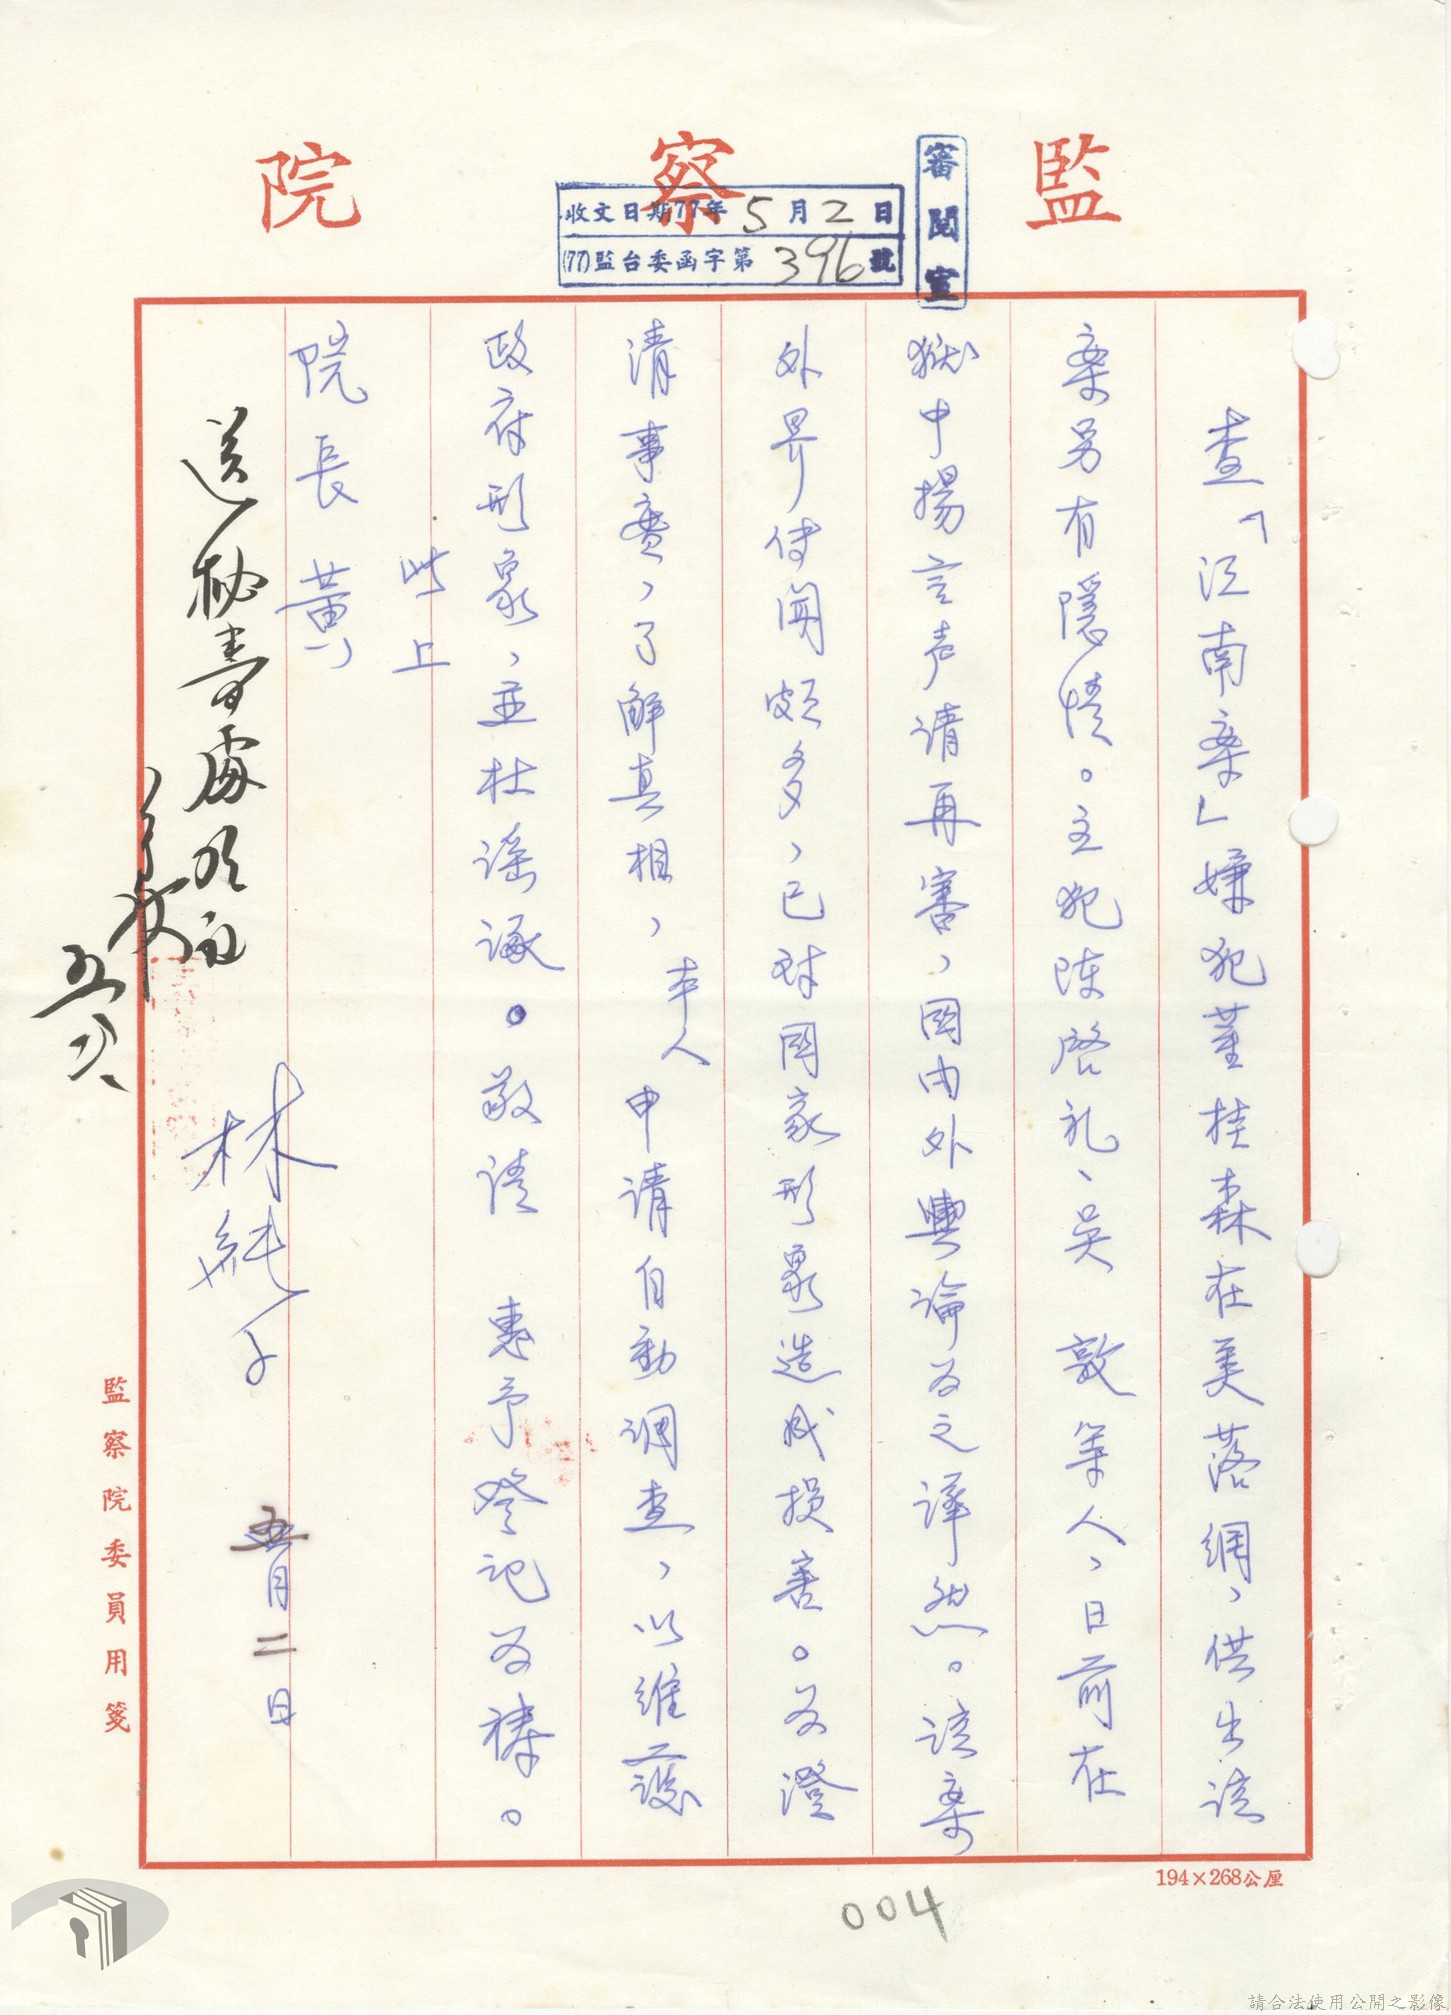 監察院
審閱室
收文日期77年5月2日
(77)監台委函字第396號
查「江南案」嫌犯董桂森在美落網，供出該
案另有隱情。主犯陳啓礼、吳敦等人，日前在
獄中揚言声请再審，國內外輿論为之譁然。该案
外界传闻頗多，已对國家形象造成损害。为澄
清事實，了解真相，本人申请自動调查，以維護
政府形象，並杜谣诼。敬请　惠予登记为祷。
此上
院長黃
林純子　五月二日
送秘書處
五、二
監察院委員用箋
194×268公厘
004
請合法使用公開之影像